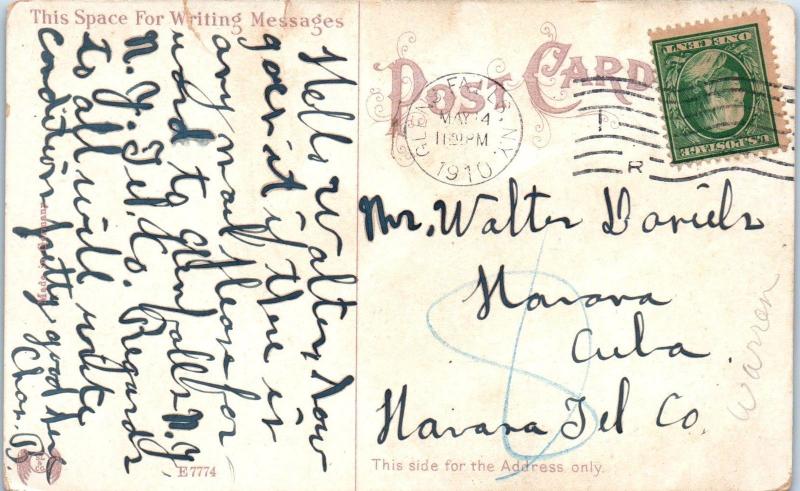 This Space For Writing Messages
Hello Walter, how
goes it if there is
any mail please for
ward to Glen Falls N.Y.
N.Y. Tel. Co. Regards
to all will write
condition pretty good
Chas. B.
Made in Germany
E 7774
POST CARD
GLENS FALLS, N.Y.
MAY 4
1910
R
ONE CENT
U.S. POSTAGE
Mr. Walter Daniels
Havana
Cuba.
Havana Tel Co.
8
Warren
This side for the Address only.